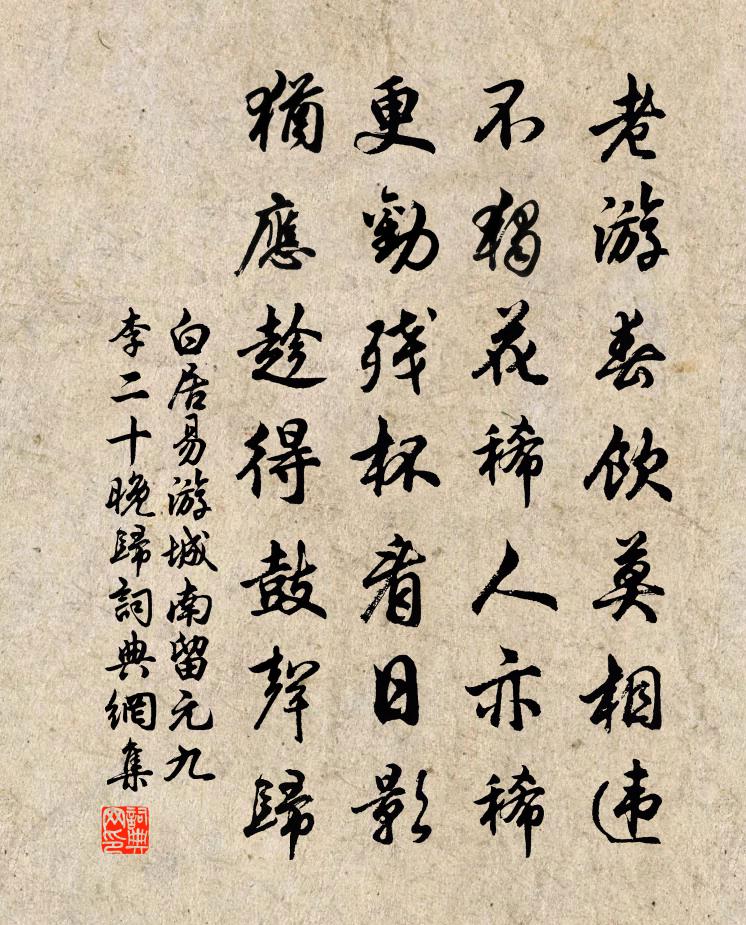 老游春飲莫相违
不獨花稀人亦稀
更勸残杯看日影
猶應趁得鼓聲歸
白居易游城南留元九
李二十晚歸詞典網集
詞典网印